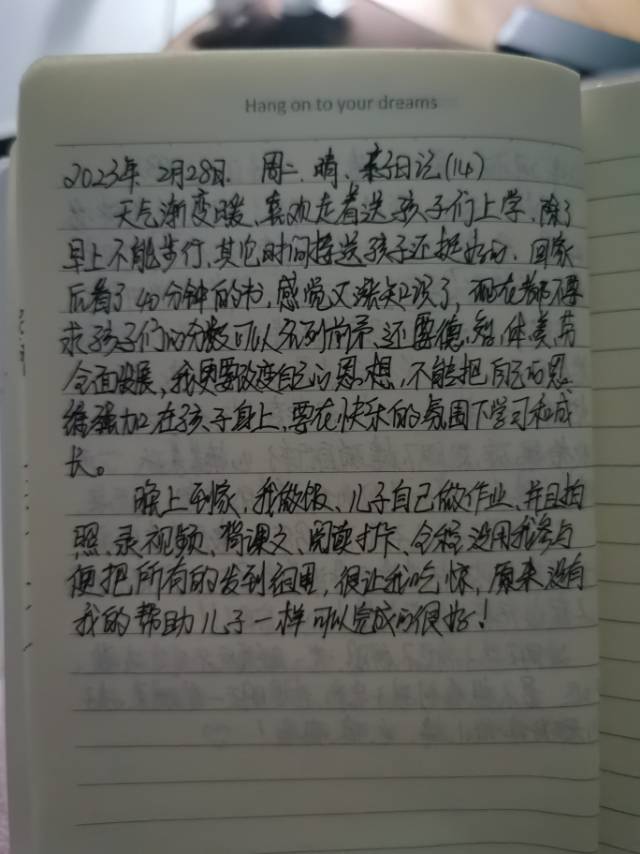 Hang on to your dreams
2023年 2月28日. 周二. 晴. 亲子日记(14)
天气渐变暖,喜欢走着送孩子们上学,除了
早上不能步行,其它时间接送孩子还挺好的. 回家
后看了40分钟的书,感觉又涨知识了,现在都不要
求孩子们的分数可以名列前茅,还要德.智.体.美.劳
全面发展,我更要改变自己的思想,不能把自己的思
维强加在孩子身上,要在快乐的氛围下学习和成
长。
晚上到家,我做饭、儿子自己做作业、并且拍
照、录视频、背课文、阅读打卡、全程没用我参与
便把所有的发到组里,很让我吃惊,原来没有
我的帮助儿子一样可以完成的很好!